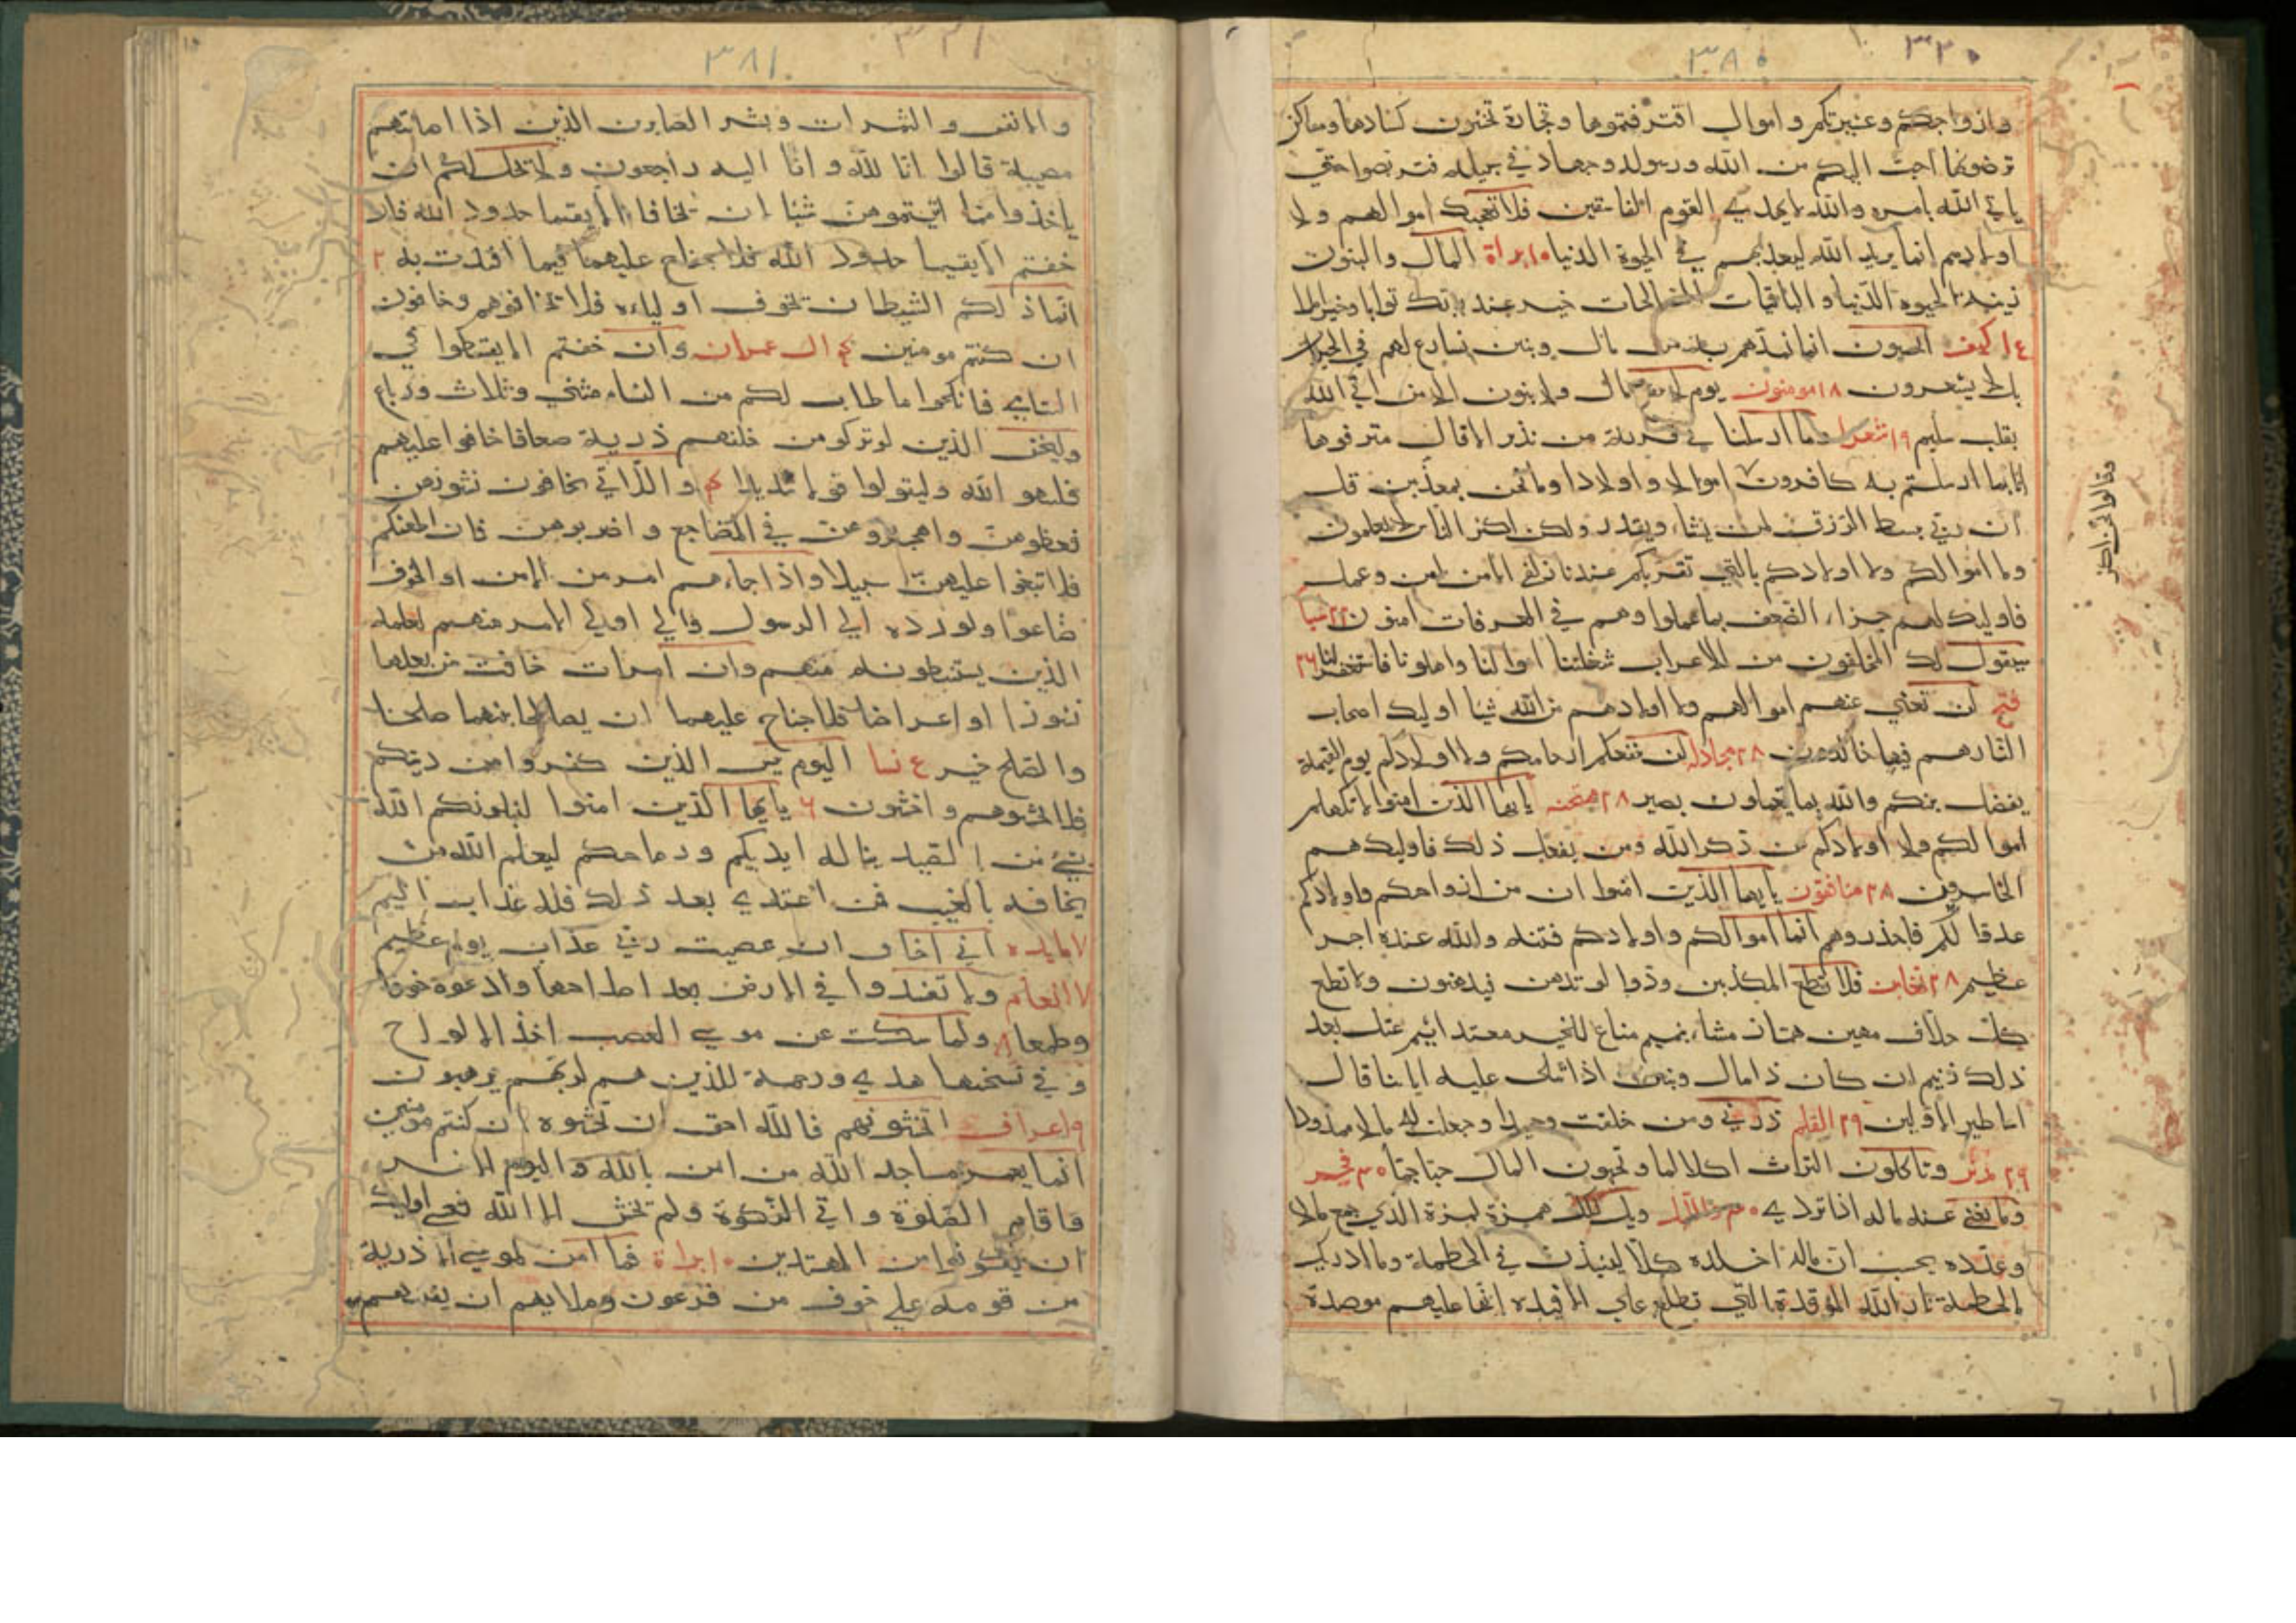 ٣٨٠
٣٢٠
وازواجكم وعشيرتكم واموال اقترفتموها وتجارة تخشون كسادها ومساكن
ترضونها احب اليكم من الله ورسوله وجهاد في سبيله فتربصوا حتي
ياتي الله بامره والله لا يهدي القوم الفاسقين فلا تعجبك اموالهم ولا
اولادهم انما يريد الله ليعذبهم في الحيوة الدنيا ١٠ براة المال والبنون
زينة الحيوه الدنيا والباقيات الصالحات خير عند ربك ثوابا وخير املا
كهف ايحسبون انما نمدهم به من مال وبنين نسارع لهم في الخيرات
بل لا يشعرون ١٨ مومنون يوم لا ينفع مال ولا بنون الا من اتي الله
بقلب سليم ١٩ شعرا وما ارسلنا في قرية من نذير الا قال مترفوها
انا بما ارسلتم به كافرون اموالا واولادا وما نحن بمعذبين قل
وقالوا نحن اكثر
ان ربي يبسط الرزق لمن يشاء ويقدر ولكن اكثر الناس لا يعلمون
وما اموالكم ولا اولادكم بالتي تقربكم عندنا زلفي الا من امن وعمل
فاوليك لهم جزاء الضعف بما عملوا وهم في الغرفات امنون ٢٢ سبا
سيقول لك المخلفون من الاعراب شغلتنا اموالنا واهلونا فاستغفر لنا ٢٦
فتح لن تغني عنهم اموالهم ولا اولادهم من الله شيا اوليك اصحاب
النار هم فيها خالدون ٢٨ مجادله لن تنفعكم ارحامكم ولا اولادكم يوم القيمة
يفصل بينكم والله بما تعملون بصير ٢٨ ممتحنه يايها الذين امنوا لا تلهكم
اموالكم ولا اولادكم عن ذكر الله ومن يفعل ذلك فاوليك هم
الخاسرون ٢٨ منافقون يايها الذين امنوا ان من ازواجكم واولادكم
عدوا لكم فاحذروهم انما اموالكم واولادكم فتنه والله عنده اجر
عظيم ٢٨ تغابن فلا تطع المكذبين ودوا لو تدهن فيدهنون ولا تطع
كل حلاف مهين هماز مشاء بنميم مناع للخير معتد اثيم عتل بعد
ذلك زنيم ان كان ذا مال وبنين اذا تتلى عليه اياتنا قال
اساطير الاولين ٢٩ القلم ذرني ومن خلقت وحيدا وجعلت له مالا ممدودا
٢٩ مدثر وتاكلون التراث اكلا لما وتحبون المال حبا جما ٣٠ فجر
وما يغني عنه ماله اذا تردي ٣٠ والليل ويل لكل همزة لمزة الذي جمع مالا
وعدده يحسب ان ماله اخلده كلا لينبذن في الحطمة وما ادريك
ما الحطمة نار الله الموقدة التي تطلع علي الافيده انها عليهم موصدة
٣٨١
٣٢١
والانفس والثمرات وبشر الصابرين الذين اذا اصابتهم
مصيبة قالوا انا لله وانا اليه راجعون ولا يحل لكم ان
ياخذوا مما اتيتموهن شيا ان يخافا الا يقيما حدود الله فان
خفتم الا يقيما حدود الله فلا جناح عليهما فيما افتدت به ٢
انما ذلكم الشيطان يخوف اولياءه فلا تخافوهم وخافون
ان كنتم مومنين ٤ ال عمران وان خفتم الا يقسطوا في
اليتامي فانكحوا ما طاب لكم من النساء مثني وثلاث ورباع
وليخش الذين لو تركو من خلفهم ذرية ضعافا خافوا عليهم
فليتقو الله وليقولوا قولا سديدا ٤ واللاتي تخافون نشوزهن
فعظوهن واهجروهن في المضاجع واضربوهن فان اطعنكم
فلا تبغوا عليهن سبيلا واذا جاءهم امر من الامن او الخوف
اذاعوا ولو ردوه الي الرسول والي اولي الامر منهم لعلمه
الذين يستنبطونه منهم وان امرات خافت من بعلها
نشوزا او اعراضا فلا جناح عليهما ان يصالحا بينهما صلحا
والصلح خير ٤ نسا اليوم يئس الذين كفروا من دينكم
فلا تخشوهم واخشون ٦ يايها الذين امنوا ليبلونكم الله
بشيء من الصيد يناله ايديكم ورماحكم ليعلم الله من
يخافه بالغيب فمن اعتدي بعد ذلك فله عذاب اليم
٧ مايده اني اخاف ان عصيت ربي عذاب يوم عظيم
٧ انعام ولا تفسدوا في الارض بعد اصلاحها وادعوه خوفا
وطمعا ٨ ولما سكت عن موسي الغضب اخذ الالواح
وفي نسختها هدي ورحمة للذين هم لربهم يرهبون
٩ اعراف اتخشونهم فالله احق ان تخشوه ان كنتم مومنين
انما يعمر مساجد الله من امن بالله واليوم الاخر
واقام الصلوة واتي الزكوة ولم يخش الا الله فعسي اوليك
ان يكونوا من المهتدين ١٠ براة فما امن لموسي الا ذرية
من قومه علي خوف من فرعون وملايهم ان يفتنهم